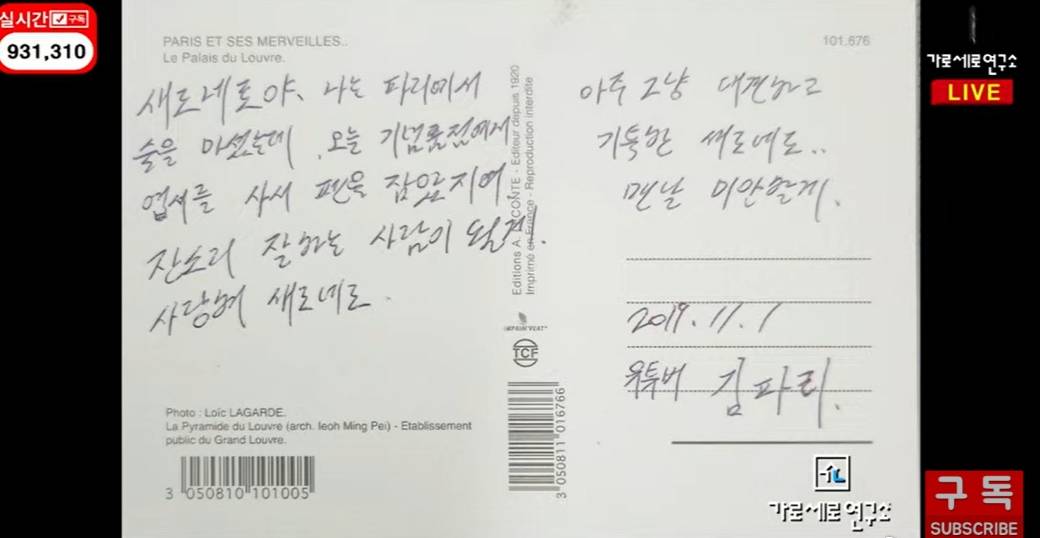 실시간 구독
931,310
PARIS ET SES MERVEILLES..
Le Palais du Louvre.
101.676
새로네로야, 나는 파리에서
술을 마셨는데, 오늘 기념품점에서
엽서를 사서 펜을 잡았지여
잔소리 잘하는 사람이 될게.
사랑혀 새로네로.
Photo : Loïc LAGARDE.
La Pyramide du Louvre (arch. Ieoh Ming Pei) - Etablissement
public du Grand Louvre.
3 050810 101005
Editions A. LECONTE - Editeur depuis 1920
Imprimé en France - Reproduction interdite
IMPRIM'VERT
TCF
3 050811 016766
아주 그냥 대견하고
기특한 새로네로..
맨날 미안할게.
2019.11.1
유투버 김파리.
가로세로연구소
가로세로연구소
LIVE
구독
SUBSCRIBE